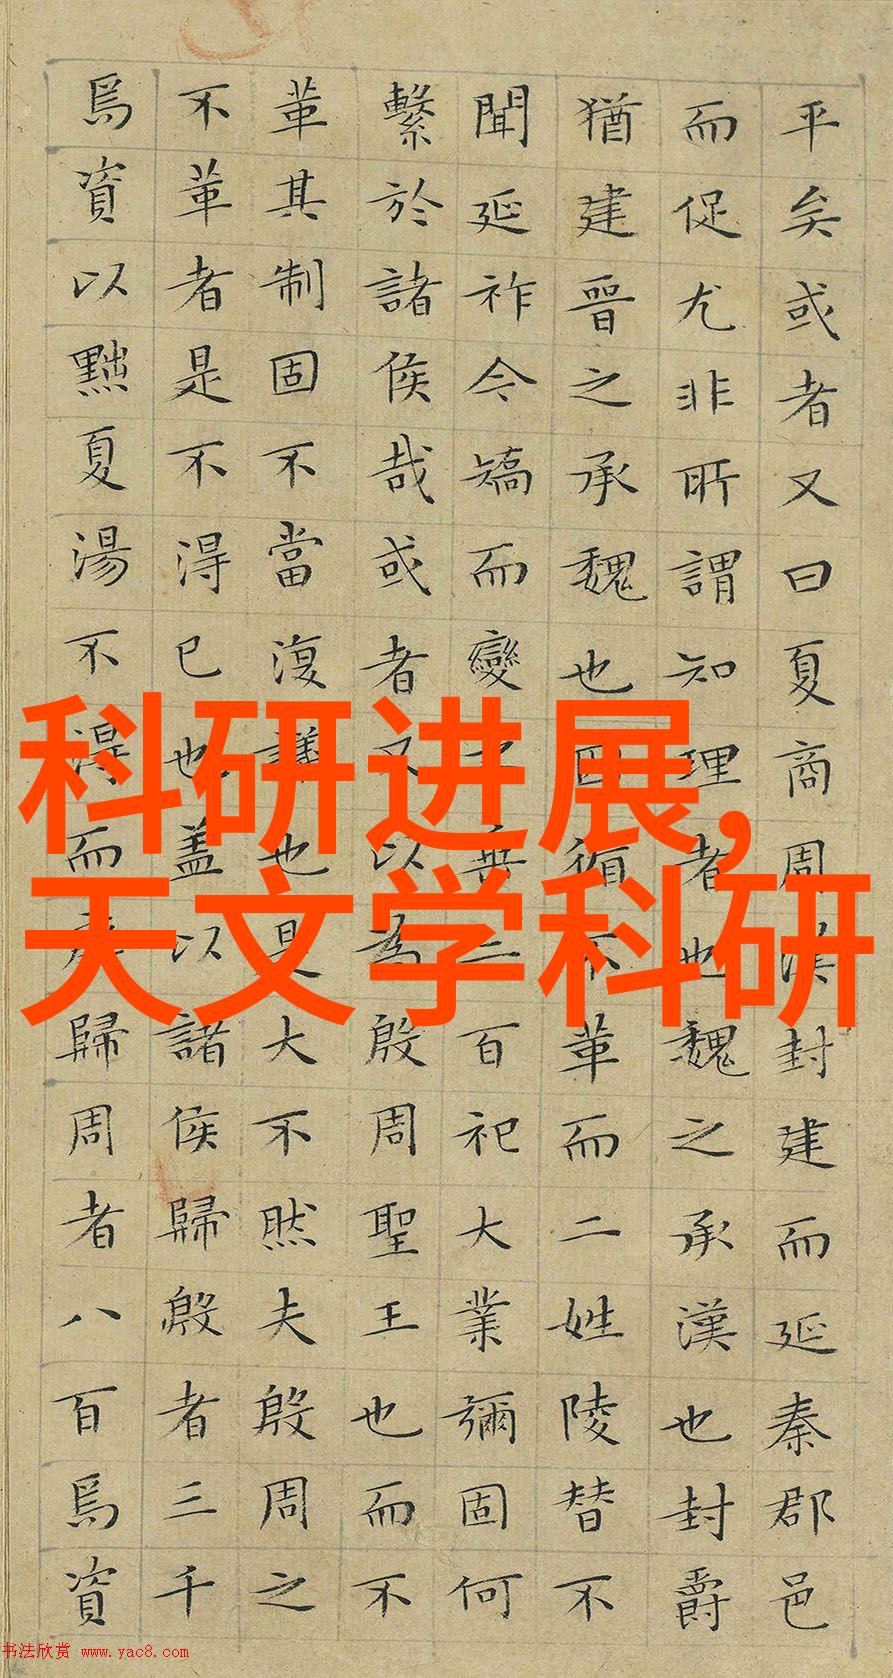 科研进展,
天文学科研
平矣或者又曰夏商周漢封建而延秦郡邑
而促尤非所謂知理者也魏之承漢也封爵
猶建晉之承魏也循不革而二姓陵替不
聞延祚今矯而變垂二百祀大業彌固何
繫於諸侯哉或者又以為殷周聖王也而不
革其制固不當復議也是大不然夫殷周之
不革者是不得已也蓋以諸侯歸殷者三千
焉資以黜夏湯不得而歸周者八百焉資
书法欣赏 www.yac8.com